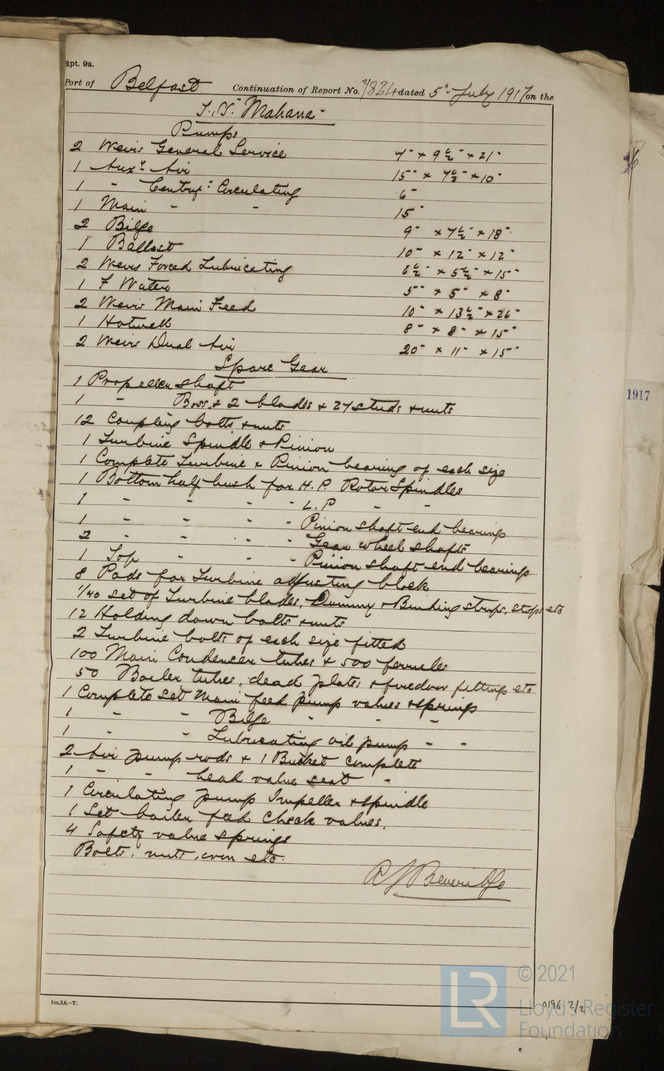 Rpt. 9a.
Port of Belfast Continuation of Report No. 7824 dated 5th July 1917 on the
T.S.S. "Mahana"
Pumps
2 Weirs General Service 7" × 9½" × 21"
1 Auxy Air 15" × 7½" × 10"
1 " Centrifl Circulating 6"
1 Main " " 15"
2 Bilge 9" × 7½" × 18"
1 Ballast 10" × 12" × 12"
2 Weirs Forced Lubricating 6½" × 5½" × 15"
1 F Water 5" × 5" × 8"
2 Weirs Main Feed 10" × 13½" × 26"
1 Hotwell 8" × 8" × 15"
2 Weirs Dual Air 20" × 11" × 15"
Spare Gear
1 Propeller shaft
1 " Boss & 2 blades & 27 studs & nuts
12 Coupling bolts & nuts
1 Turbine Spindle & Pinion
1 Complete Turbine & Pinion bearing of each size
1 Bottom half bush for H.P. Rotor Spindles
1 " " " " L.P. " "
1 " " " " Pinion shaft end bearings
2 " " " " Gear wheel shafts
1 Top " " " Pinion shaft end bearings
8 Pads for Turbine adjusting block
1/40 set of Turbine blades, Dummy & Binding strips, stops etc
12 Holding down bolts & nuts
2 Turbine bolts of each size fitted
100 Main Condenser tubes & 500 ferrules
50 Boiler tubes, dead plates & firedoor fittings etc
1 Complete set Main feed pump valves & springs
1 " " Bilge " " "
1 " " Lubricating oil pump " "
2 Air pump rods & 1 Bucket complete
1 " " head valve seat "
1 Circulating pump Impeller & spindle
1 Set boiler feed check valves.
4 Safety valve springs
Bolts, nuts, iron etc.
R J Beveridge
1917
0196 2/2
LR
© 2021
Lloyd's Register
Foundation